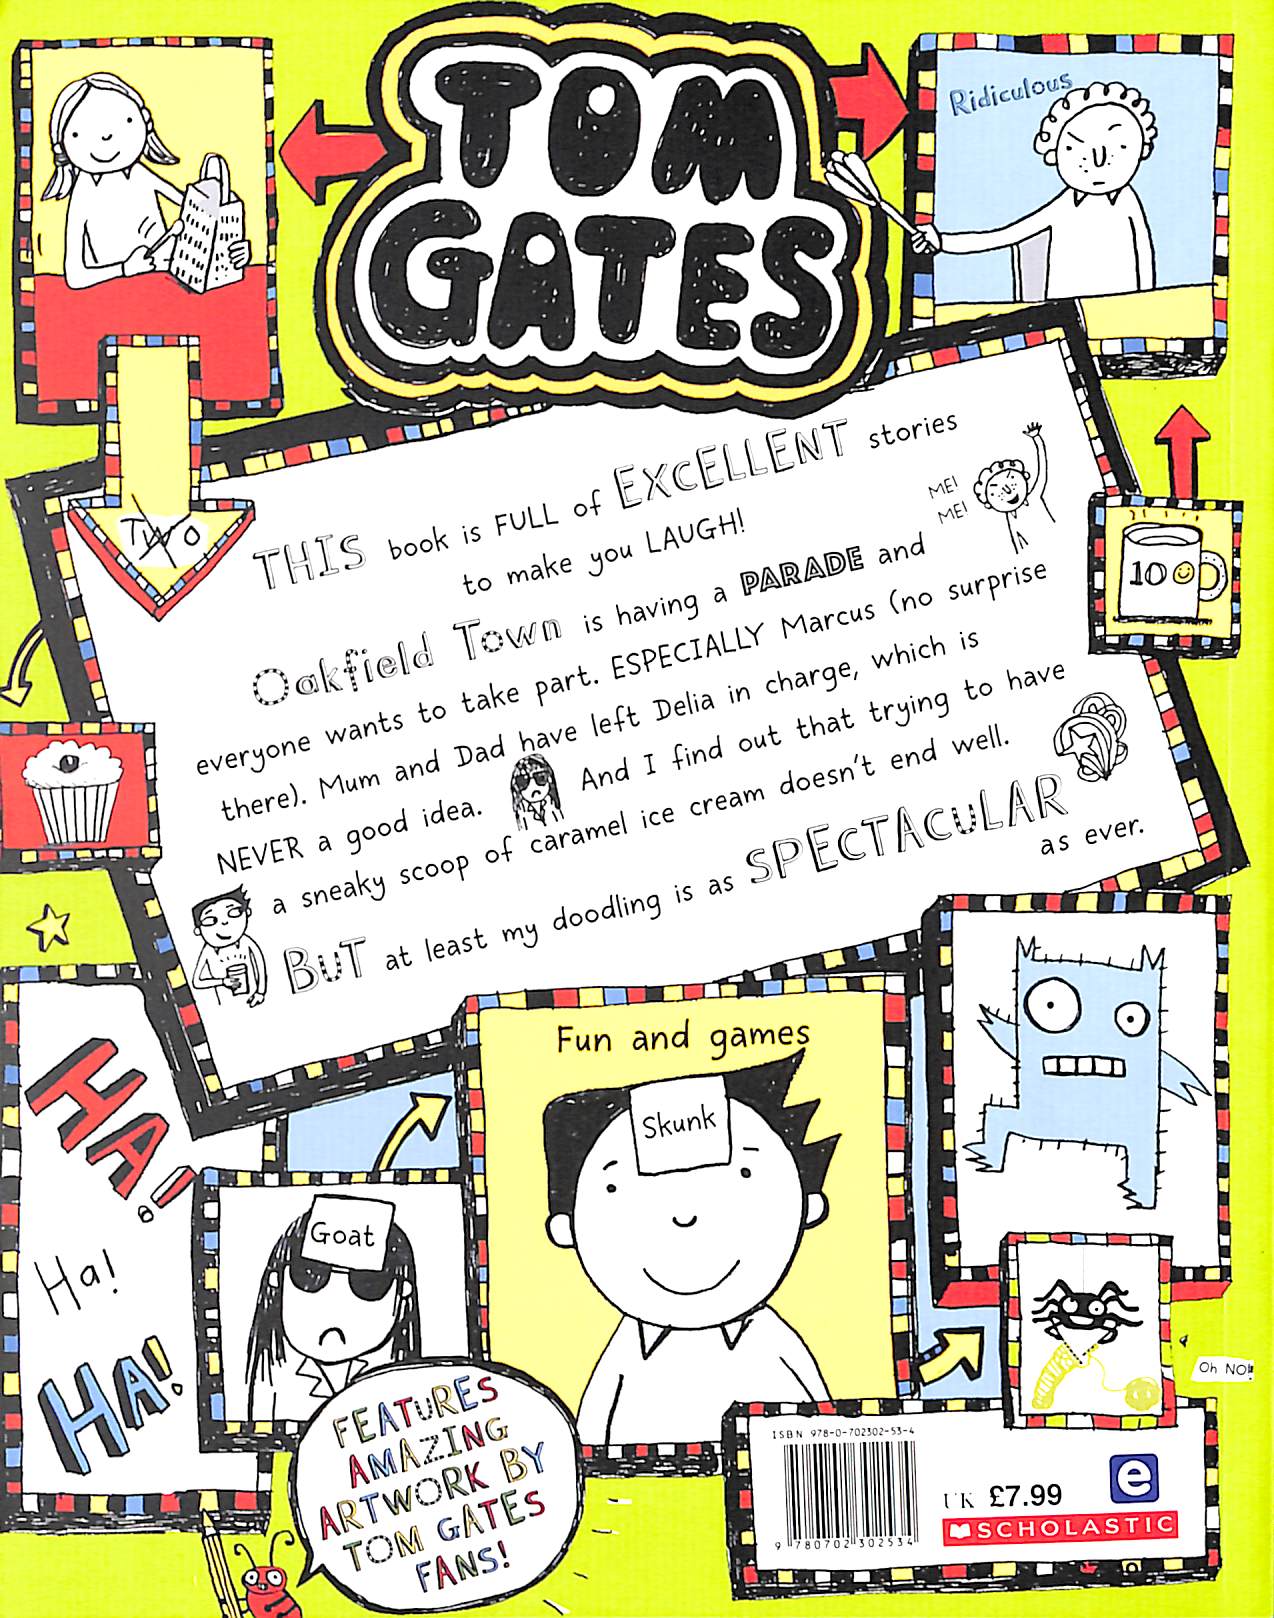 TOM
GATES
Ridiculous
TWO
THIS book is FULL of EXCELLENT stories
to make you LAUGH!
ME!
ME!
Oakfield Town is having a PARADE and
everyone wants to take part. ESPECIALLY Marcus (no surprise
there). Mum and Dad have left Delia in charge, which is
NEVER a good idea. And I find out that trying to have
a sneaky scoop of caramel ice cream doesn't end well.
BUT at least my doodling is as SPECTACULAR
as ever.
10
HA!
Ha!
HA!
Fun and games
Skunk
Goat
FEATURES
AMAZING
ARTWORK BY
TOM GATES
FANS!
Oh NO!
ISBN 978-0-702302-53-4
9 780702 302534
UK £7.99
e
SCHOLASTIC